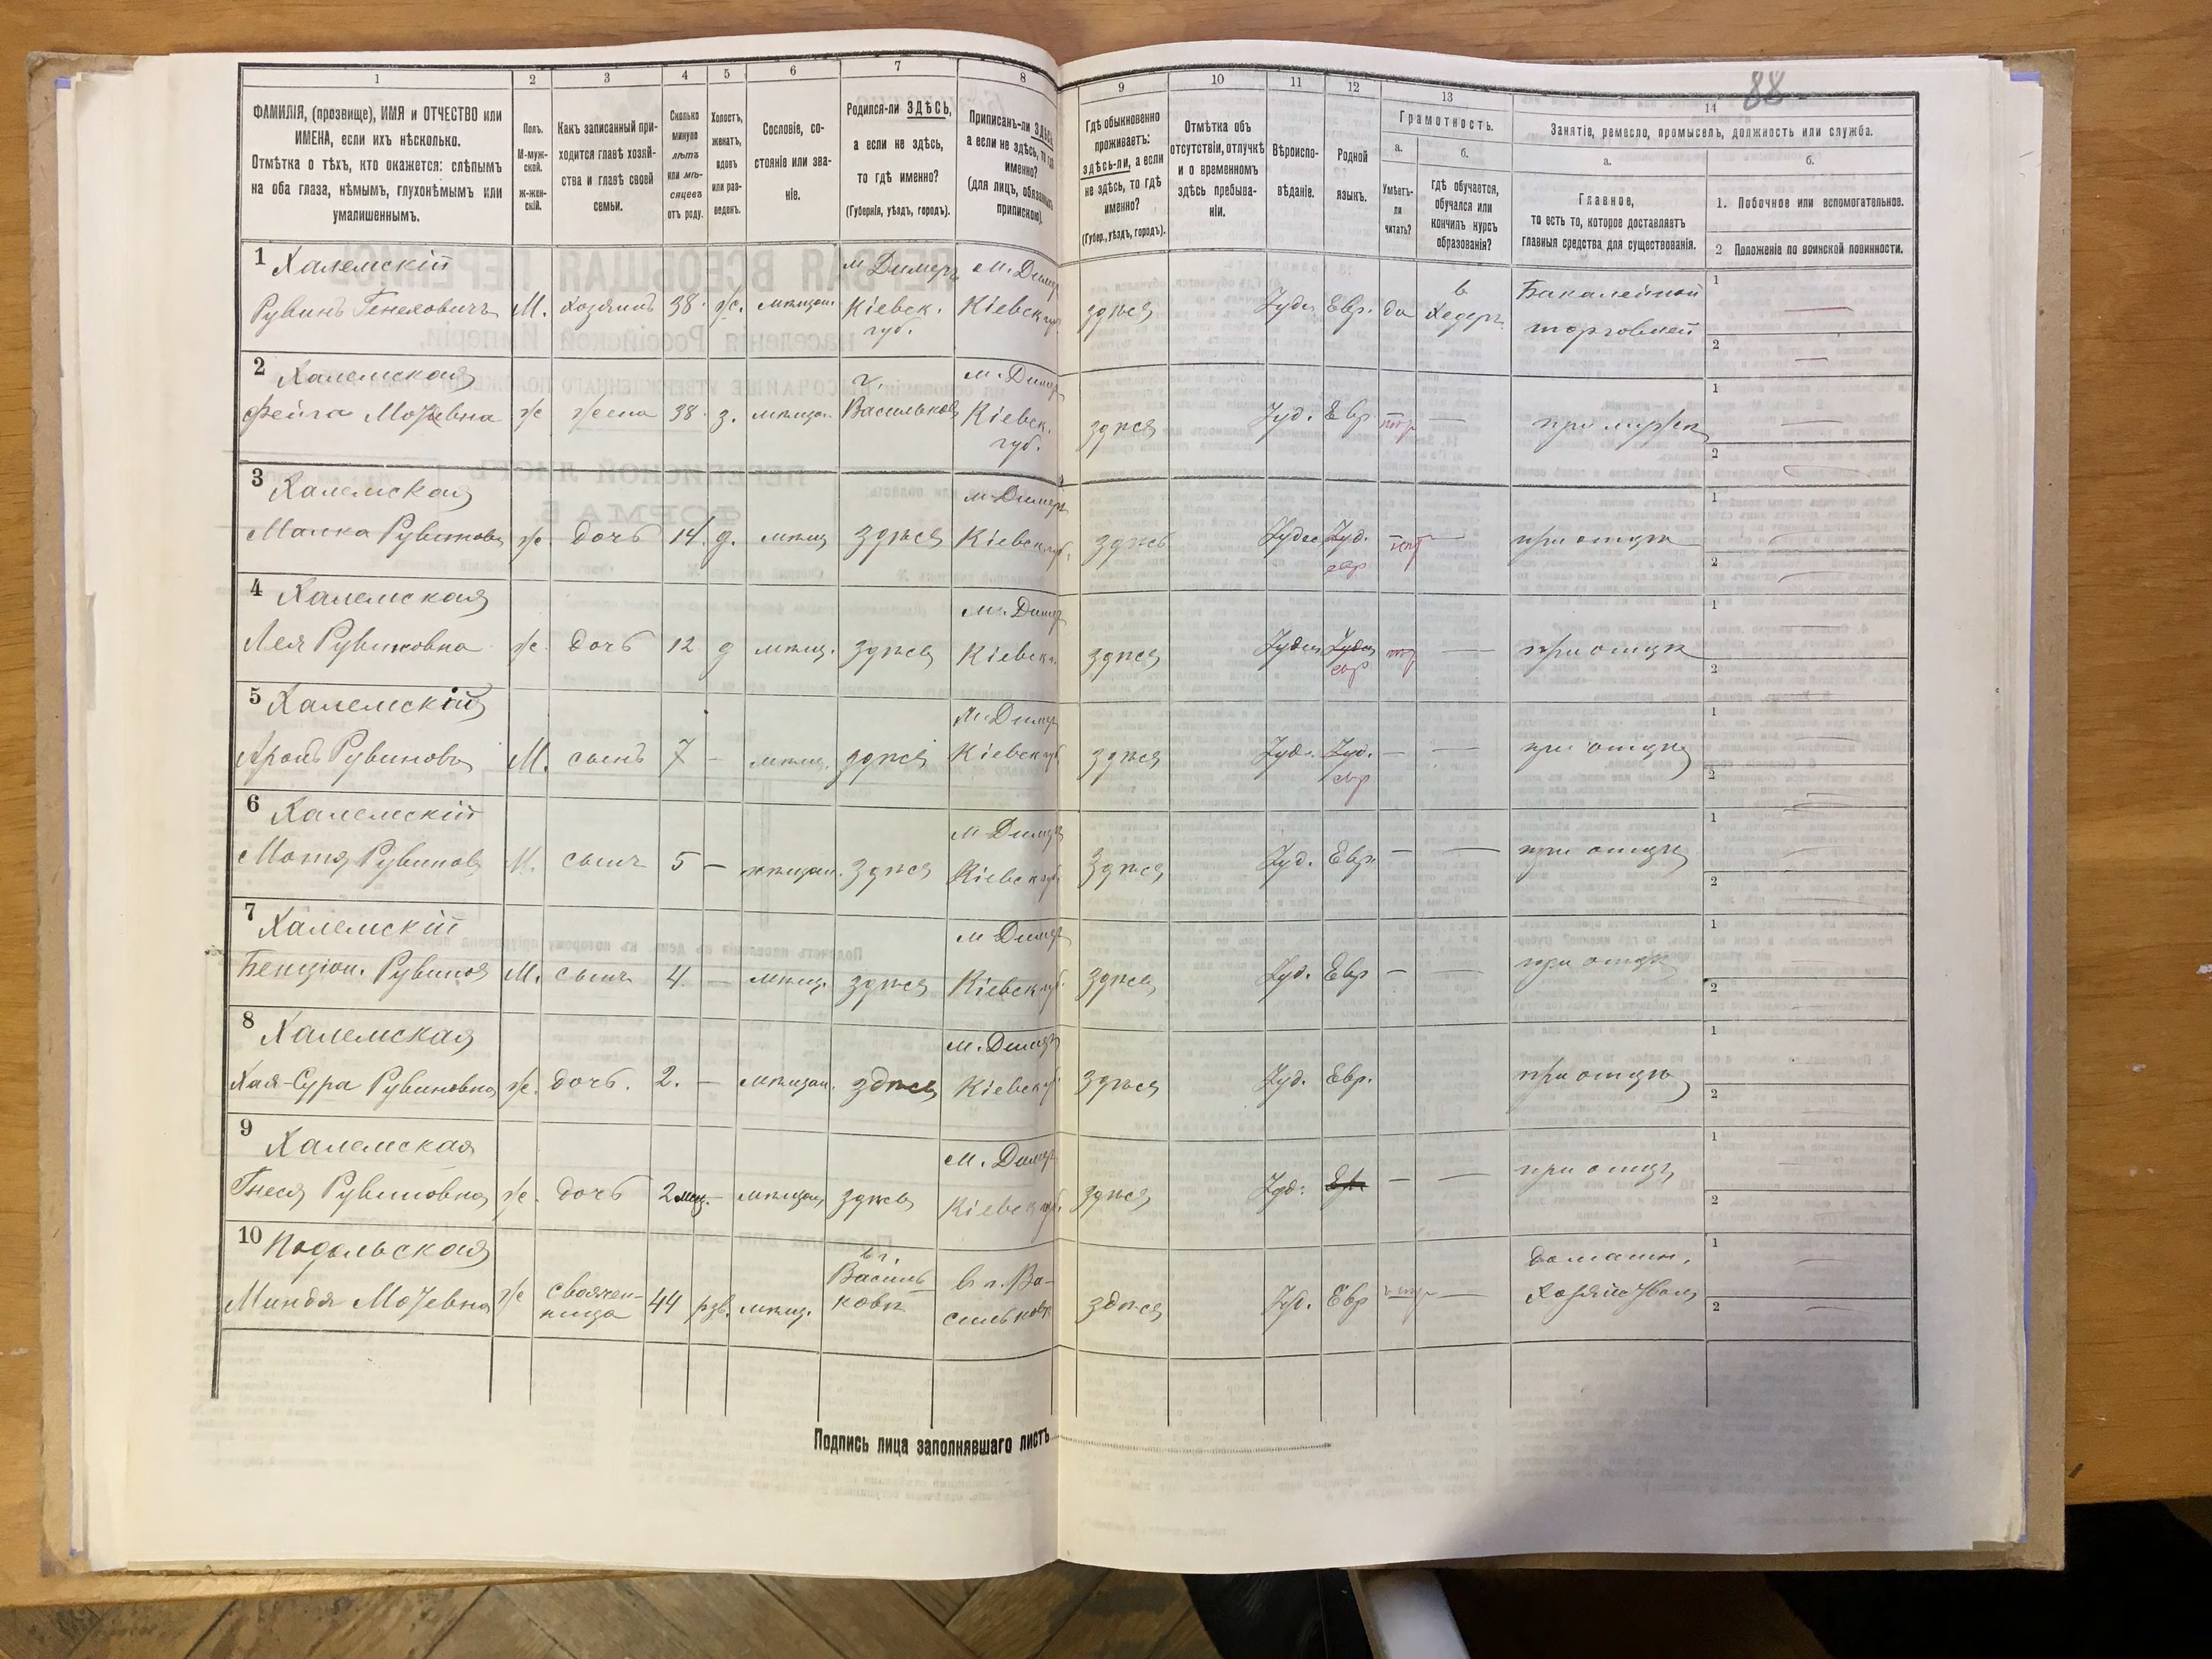 88
1 2 3 4 5 6 7 8 9 10 11 12 13 14
ФАМИЛІЯ, (прозвище), ИМЯ и ОТЧЕСТВО или
ИМЕНА, если ихъ нѣсколько.
Отмѣтка о тѣхъ, кто окажется: слѣпымъ
на оба глаза, нѣмымъ, глухонѣмымъ или
умалишеннымъ.
Полъ.
М-муж-
ской.
ж-жен-
скій.
Какъ записанный при-
ходится главѣ хозяй-
ства и главѣ своей
семьи.
Сколько
минуло
лѣтъ
или мѣ-
сяцевъ
отъ роду.
Холостъ,
женатъ,
вдовъ
или раз-
веденъ.
Сословіе, со-
стояніе или зва-
ніе.
Родился-ли ЗДѢСЬ,
а если не здѣсь,
то гдѣ именно?
(Губернія, уѣздъ, городъ).
Приписанъ-ли ЗДѢСЬ,
а если не здѣсь, то гдѣ
именно?
(для лицъ, обязанныхъ
припискою).
Гдѣ обыкновенно
проживаетъ:
здѣсь-ли, а если
не здѣсь, то гдѣ
именно?
(Губер., уѣздъ, городъ).
Отмѣтка объ
отсутствіи, отлучкѣ
и о временномъ
здѣсь пребыва-
ніи.
Вѣроиспо-
вѣданіе.
Родной
языкъ.
Грамотность.
а.
Умѣетъ-
ли
читать?
б.
гдѣ обучается,
обучался или
кончилъ курсъ
образованія?
Занятіе, ремесло, промыселъ, должность или служба.
а.
Главное,
то есть то, которое доставляетъ
главныя средства для существованія.
б.
1. Побочное или вспомогательное.
2 Положеніе по воинской повинности.
1 Халемскій м Димеръ м. Димеръ в Бакалейной 1
Рувинъ Генеховичъ М. хозяинъ 38. ж. мѣщан Кіевск. Кіевск губ здѣся Іуде Евр. да Хедеръ торговлей
губ. 2
2 Халемская г. м. Димеръ 1
Фейга Мозевна ж жена 38. з. мѣщан. Васильков Кіевск. здѣся Іуд. Евр при мужѣ
губ. 2
3 Халемская м Димеръ 1
Малка Рувинова ж. дочь 14. д. мѣщ здѣся Кіевск губ. здѣсь Іудее Іуд. при отцѣ
евр 2
4 Халемская м. Димер 1
Лея Рувиновна ж. дочь 12 д мѣщ. здѣся Кіевск здѣся Іудей Іудей — при отцѣ
евр 2
5 Халемскій м Димеръ 1
Аронъ Рувиновъ М. сынъ 7 - мѣщ. здѣся Кіевск губ здѣся Іуд. Іуд. — — при отцѣ
евр 2
6 Халемскій м Димеръ 1
Мотя Рувинов М. сынъ 5 — мѣщан. здѣся Кіевск губ здѣся Іуд. Евр. — — при отцѣ
2
7 Халемскій м Димер 1
Бенціон. Рувинов М. сынъ 4. — мѣщ. здѣся Кіевск губ здѣся Іуд. Евр — — при отцѣ
2
8 Халемская м. Димеръ 1
Хая-Сура Рувиновна ж. дочь. 2. — мѣщан. здѣся Кіевск губ здѣся Іуд. Евр. при отцѣ
2
9 Халемская м. Димер 1
Гнеся Рувиновна ж. дочь 2 мец. - мѣщан здѣсь Кіевск губ. здѣся Іуд. Евр — — при отцѣ
2
10 Подольская в г. Домашн. 1
Миндля Мозевна ж свояче- 44 рзв. мѣщ. Василь- в г. Ва- здѣся Іуд. Евр — Хозяйством
ница ковѣ сильковѣ 2
Подпись лица заполнявшаго листъ